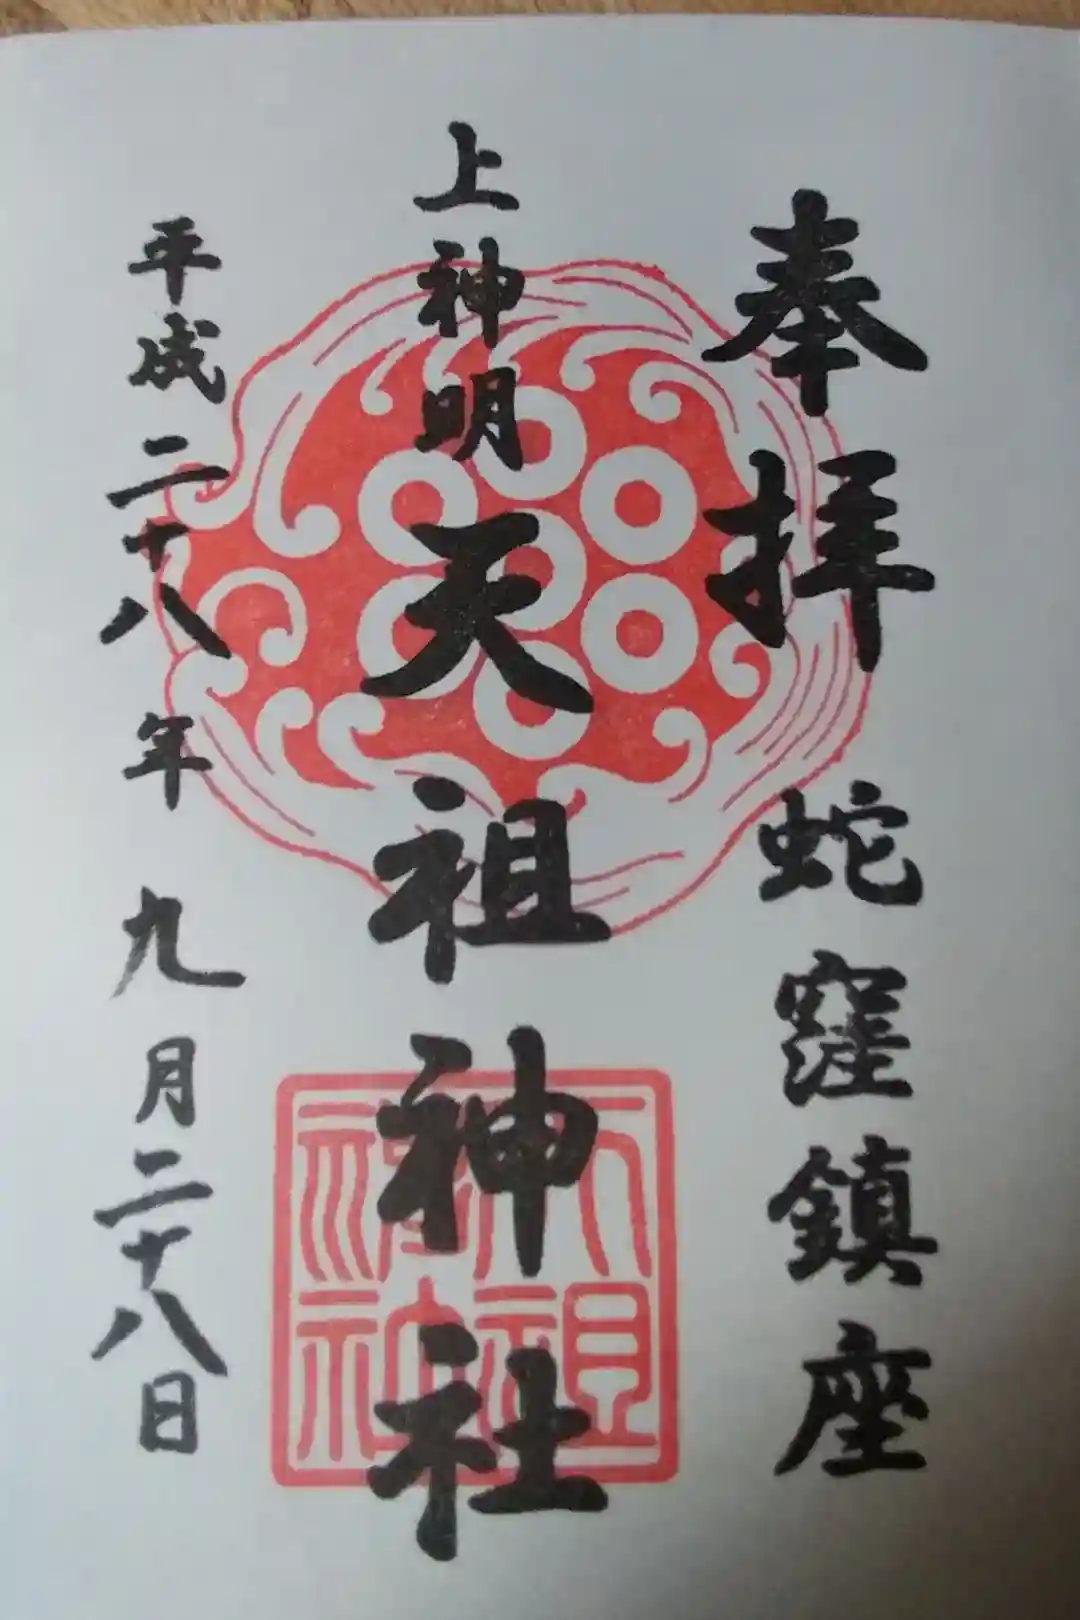 奉拝 蛇窪鎮座
上神明
天祖神社
平成二十八年九月二十八日
天祖
神社